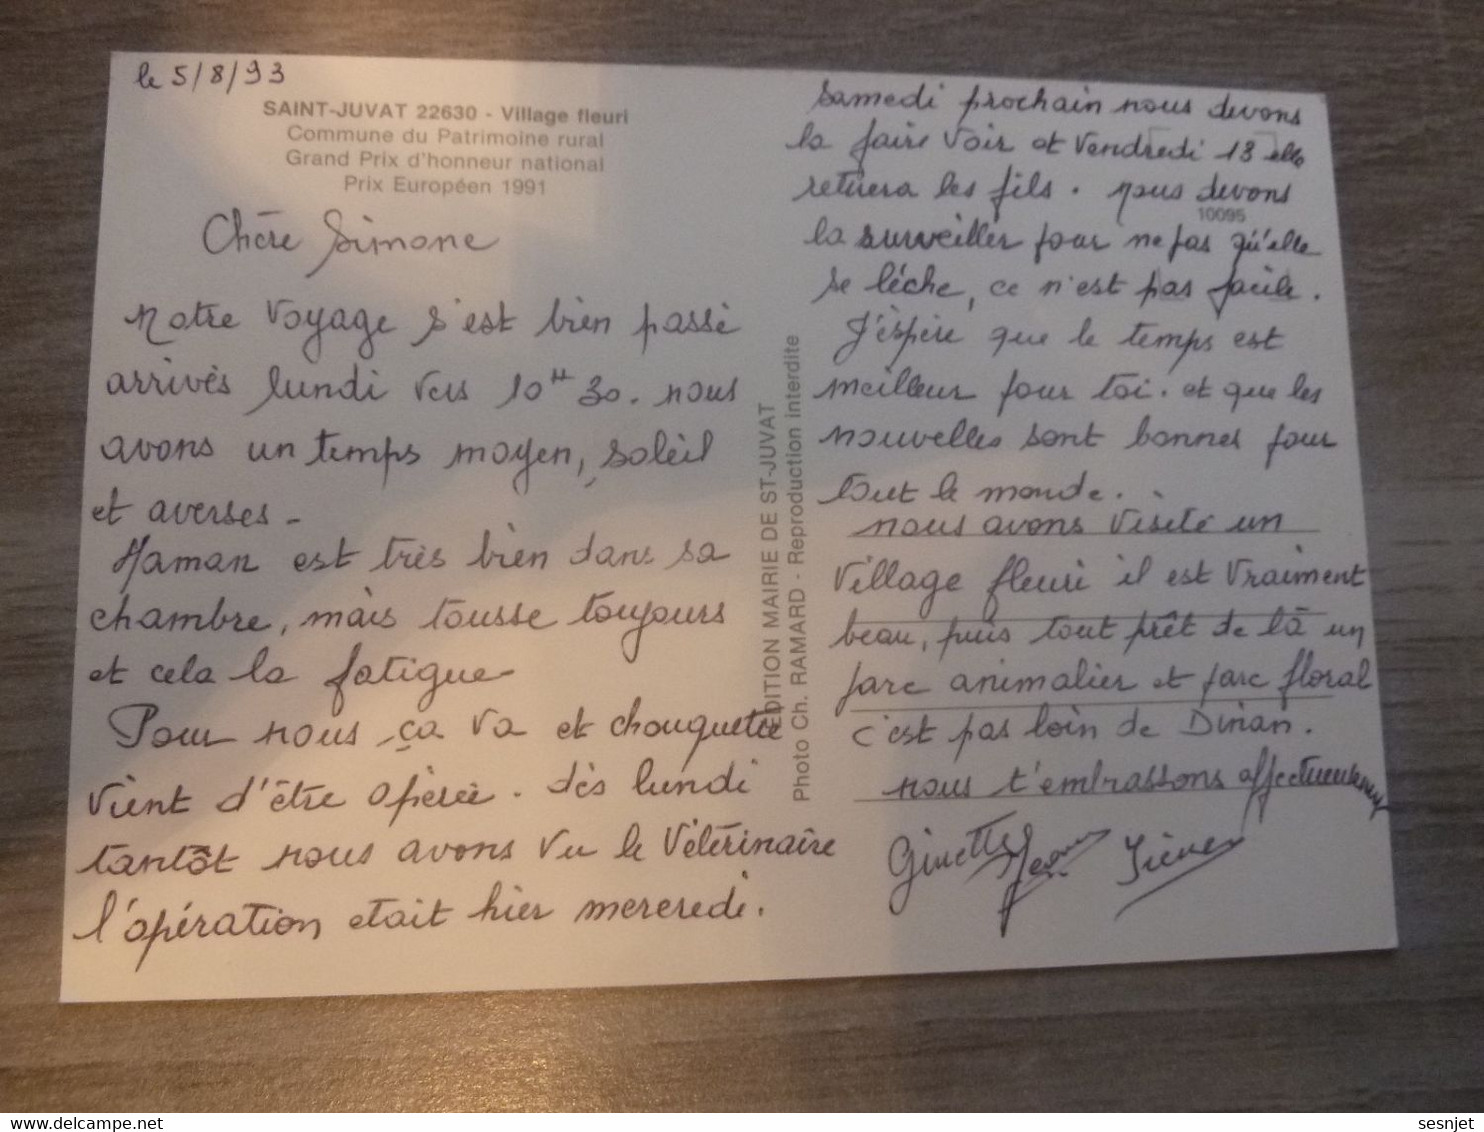 le 5/8/93
SAINT-JUVAT 22630 - Village fleuri
Commune du Patrimoine rural
Grand Prix d'honneur national
Prix Européen 1991
Chère Simone
Notre voyage s'est bien passé
arrivés lundi vers 10H30. nous
avons un temps moyen, soleil
et averses -
Maman est très bien dans sa
chambre, mais tousse toujours
et cela la fatigue -
Pour nous ça va et chouquette
vient d'être opérée. dès lundi
tantôt nous avons vu le vétérinaire
l'opération etait hier mercredi.
EDITION MAIRIE DE ST-JUVAT
Photo Ch. RAMARD - Reproduction interdite
Samedi prochain nous devons
la faire voir et vendredi 13 elle
retirera les fils. nous devons
10095
la surveiller pour ne pas qu'elle
se lèche, ce n'est pas facile.
J'éspère que le temps est
meilleur pour toi. et que les
nouvelles sont bonnes pour
tout le monde.
nous avons visité un
village fleuri il est vraiment
beau, puis tout prêt de là un
parc animalier et parc floral
c'est pas loin de Dinan.
nous t'embrassons affectueusement
Ginette Jean
sesnjet